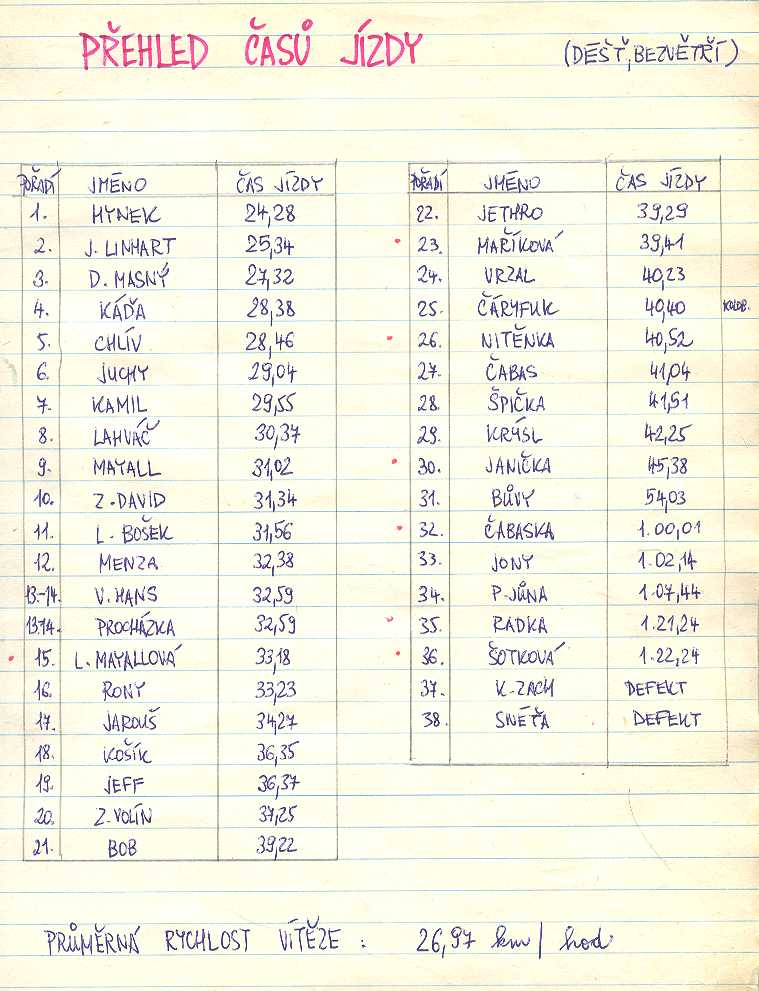 PŘEHLED ČASŮ JÍZDY (DÉŠŤ, BEZVĚTŘÍ)
POŘADÍ JMÉNO ČAS JÍZDY
1. HYNEK 24,28
2. J. LINHART 25,34
3. D. MASNÝ 27,32
4. KÁĎA 28,38
5. CHLÍV 28,46
6. JUCHY 29,04
7. KAMIL 29,55
8. LAHVÁČ 30,37
9. MAYALL 31,02
10. Z. DAVID 31,34
11. L. BOŠEK 31,56
12. MENZA 32,38
13.-14. V. HANS 32,59
13.14. PROCHÁZKA 32,59
15. L. MAYALLOVÁ 33,18
16. RONY 33,23
17. JAROUŠ 34,27
18. KOŠÍK 36,35
19. JEFF 36,37
20. Z. VOLÍN 37,25
21. BOB 39,22
POŘADÍ JMÉNO ČAS JÍZDY
22. JETHRO 39,29
23. MAŘÍKOVÁ 39,41
24. VRZAL 40,23
25. ČÁRYFUK 40,40
26. NITĚNKA 40,52
27. ČABAS 41,04
28. ŠPIČKA 41,51
29. KRÝSL 42,25
30. JANIČKA 45,38
31. BŮVY 54,03
32. ČABASKA 1.00,01
33. JONY 1.02,14
34. P. JŮNA 1.07,44
35. RADKA 1.21,24
36. ŠOTKOVÁ 1.22,24
37. K. ZACH DEFEKT
38. SNĚŤA DEFEKT
PRŮMĚRNÁ RYCHLOST VÍTĚZE : 26,97 km/hod.